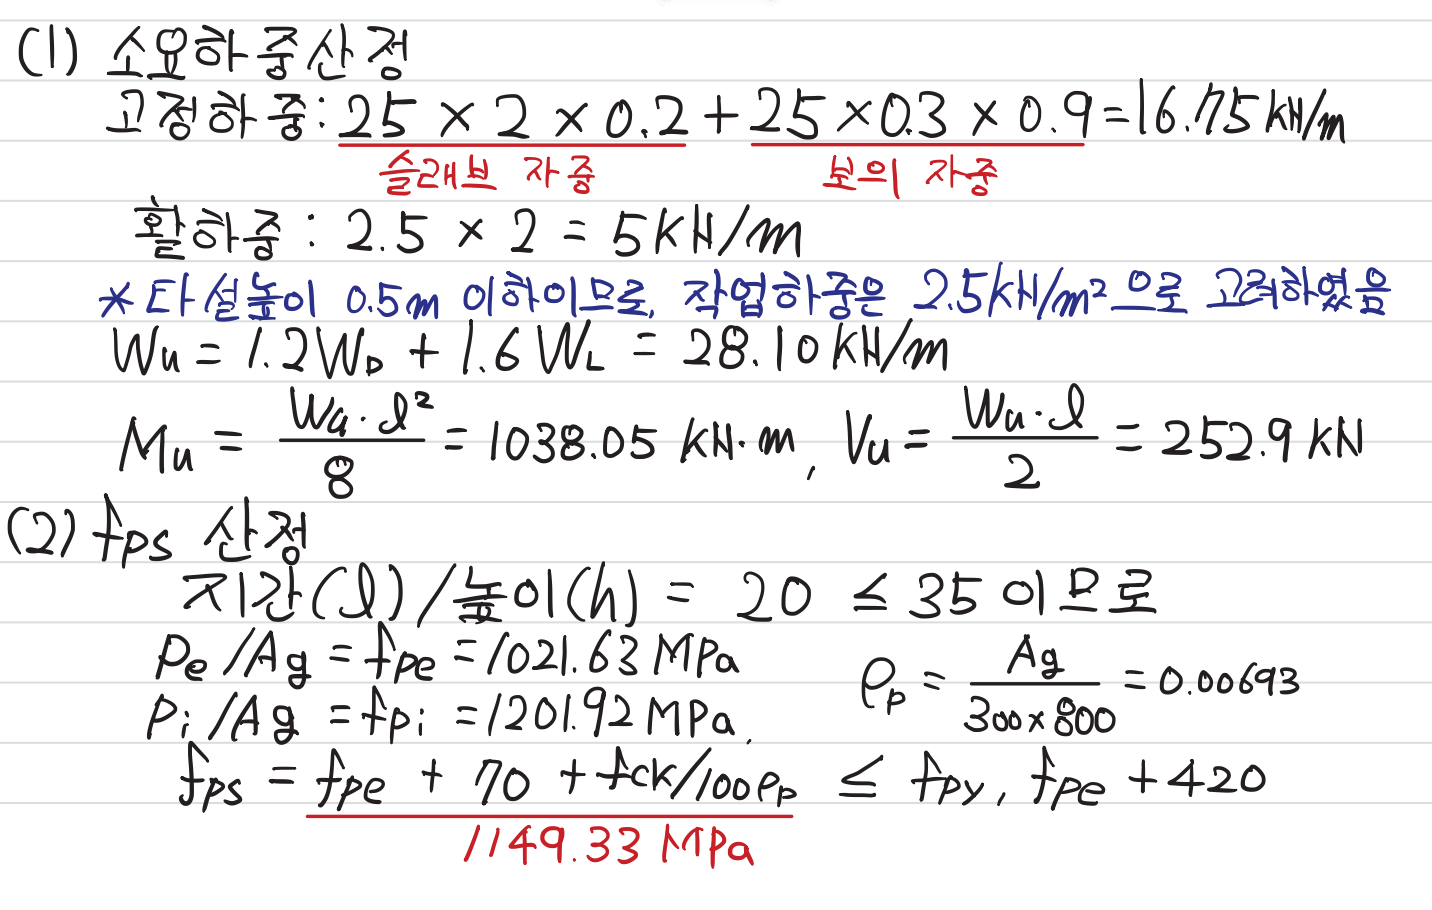 (1) 소요하중산정
고정하중: 25 × 2 × 0.2 + 25 × 0.3 × 0.9 = 16.75 kN/m
슬래브 자중 보의 자중
활하중 : 2.5 × 2 = 5 kN/m
* 타설높이 0.5m 이하이므로, 작업하중은 2.5kN/m² 으로 고려하였음
Wu = 1.2 WD + 1.6 WL = 28.10 kN/m
Mu = Wu·l² / 8 = 1038.05 kN·m, Vu = Wu·l / 2 = 252.9 kN
(2) fps 산정
지간(l)/높이(h) = 20 ≤ 35 이므로
Pe/Ag = fpe = 1021.63 MPa
ρp = Ag / 300×800 = 0.00693
Pi/Ag = fpi = 1201.92 MPa.
fps = fpe + 70 + fck/100ρp ≤ fpy, fpe + 420
1149.33 MPa